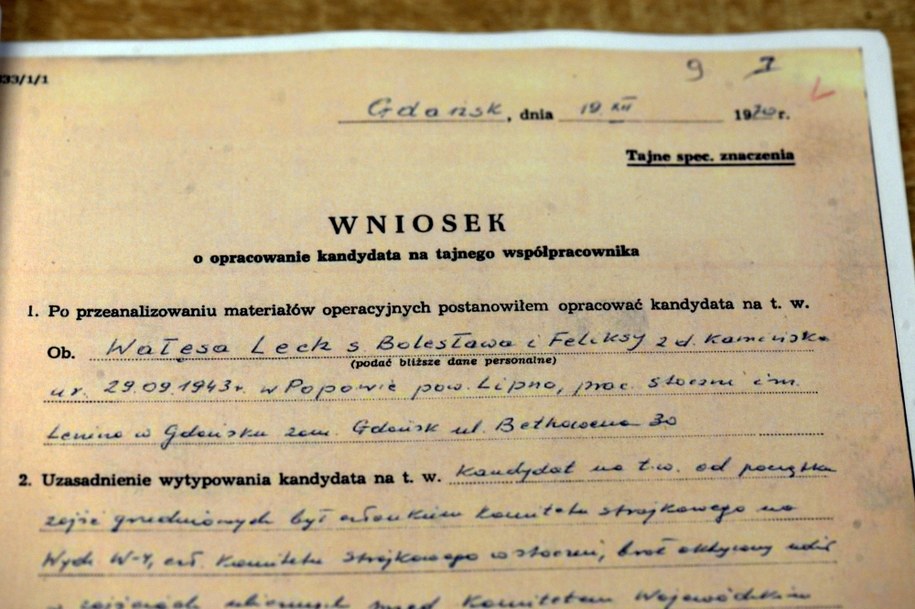 333/1/1
9 7
Gdańsk, dnia 19 XII 1970 r.
Tajne spec. znaczenia
WNIOSEK
o opracowanie kandydata na tajnego współpracownika
1. Po przeanalizowaniu materiałów operacyjnych postanowiłem opracować kandydata na t. w.
Ob. Wałęsa Lech s. Bolesława i Feliksy z d. Kamieńska
(podać bliższe dane personalne)
ur. 29.09.1943r. w Popowie pow. Lipno, prac. stoczni im.
Lenina w Gdańsku zam. Gdańsk ul. Bethovena 30
2. Uzasadnienie wytypowania kandydata na t. w. Kandydat na t.w. od początku
zajść grudniowych był członkiem Komitetu strajkowego na
Wydz. W-4, czł. Komitetu Strajkowego w stoczni, brał aktywny udział
w zajściach ulicznych przed Komitetem Wojewódzkim